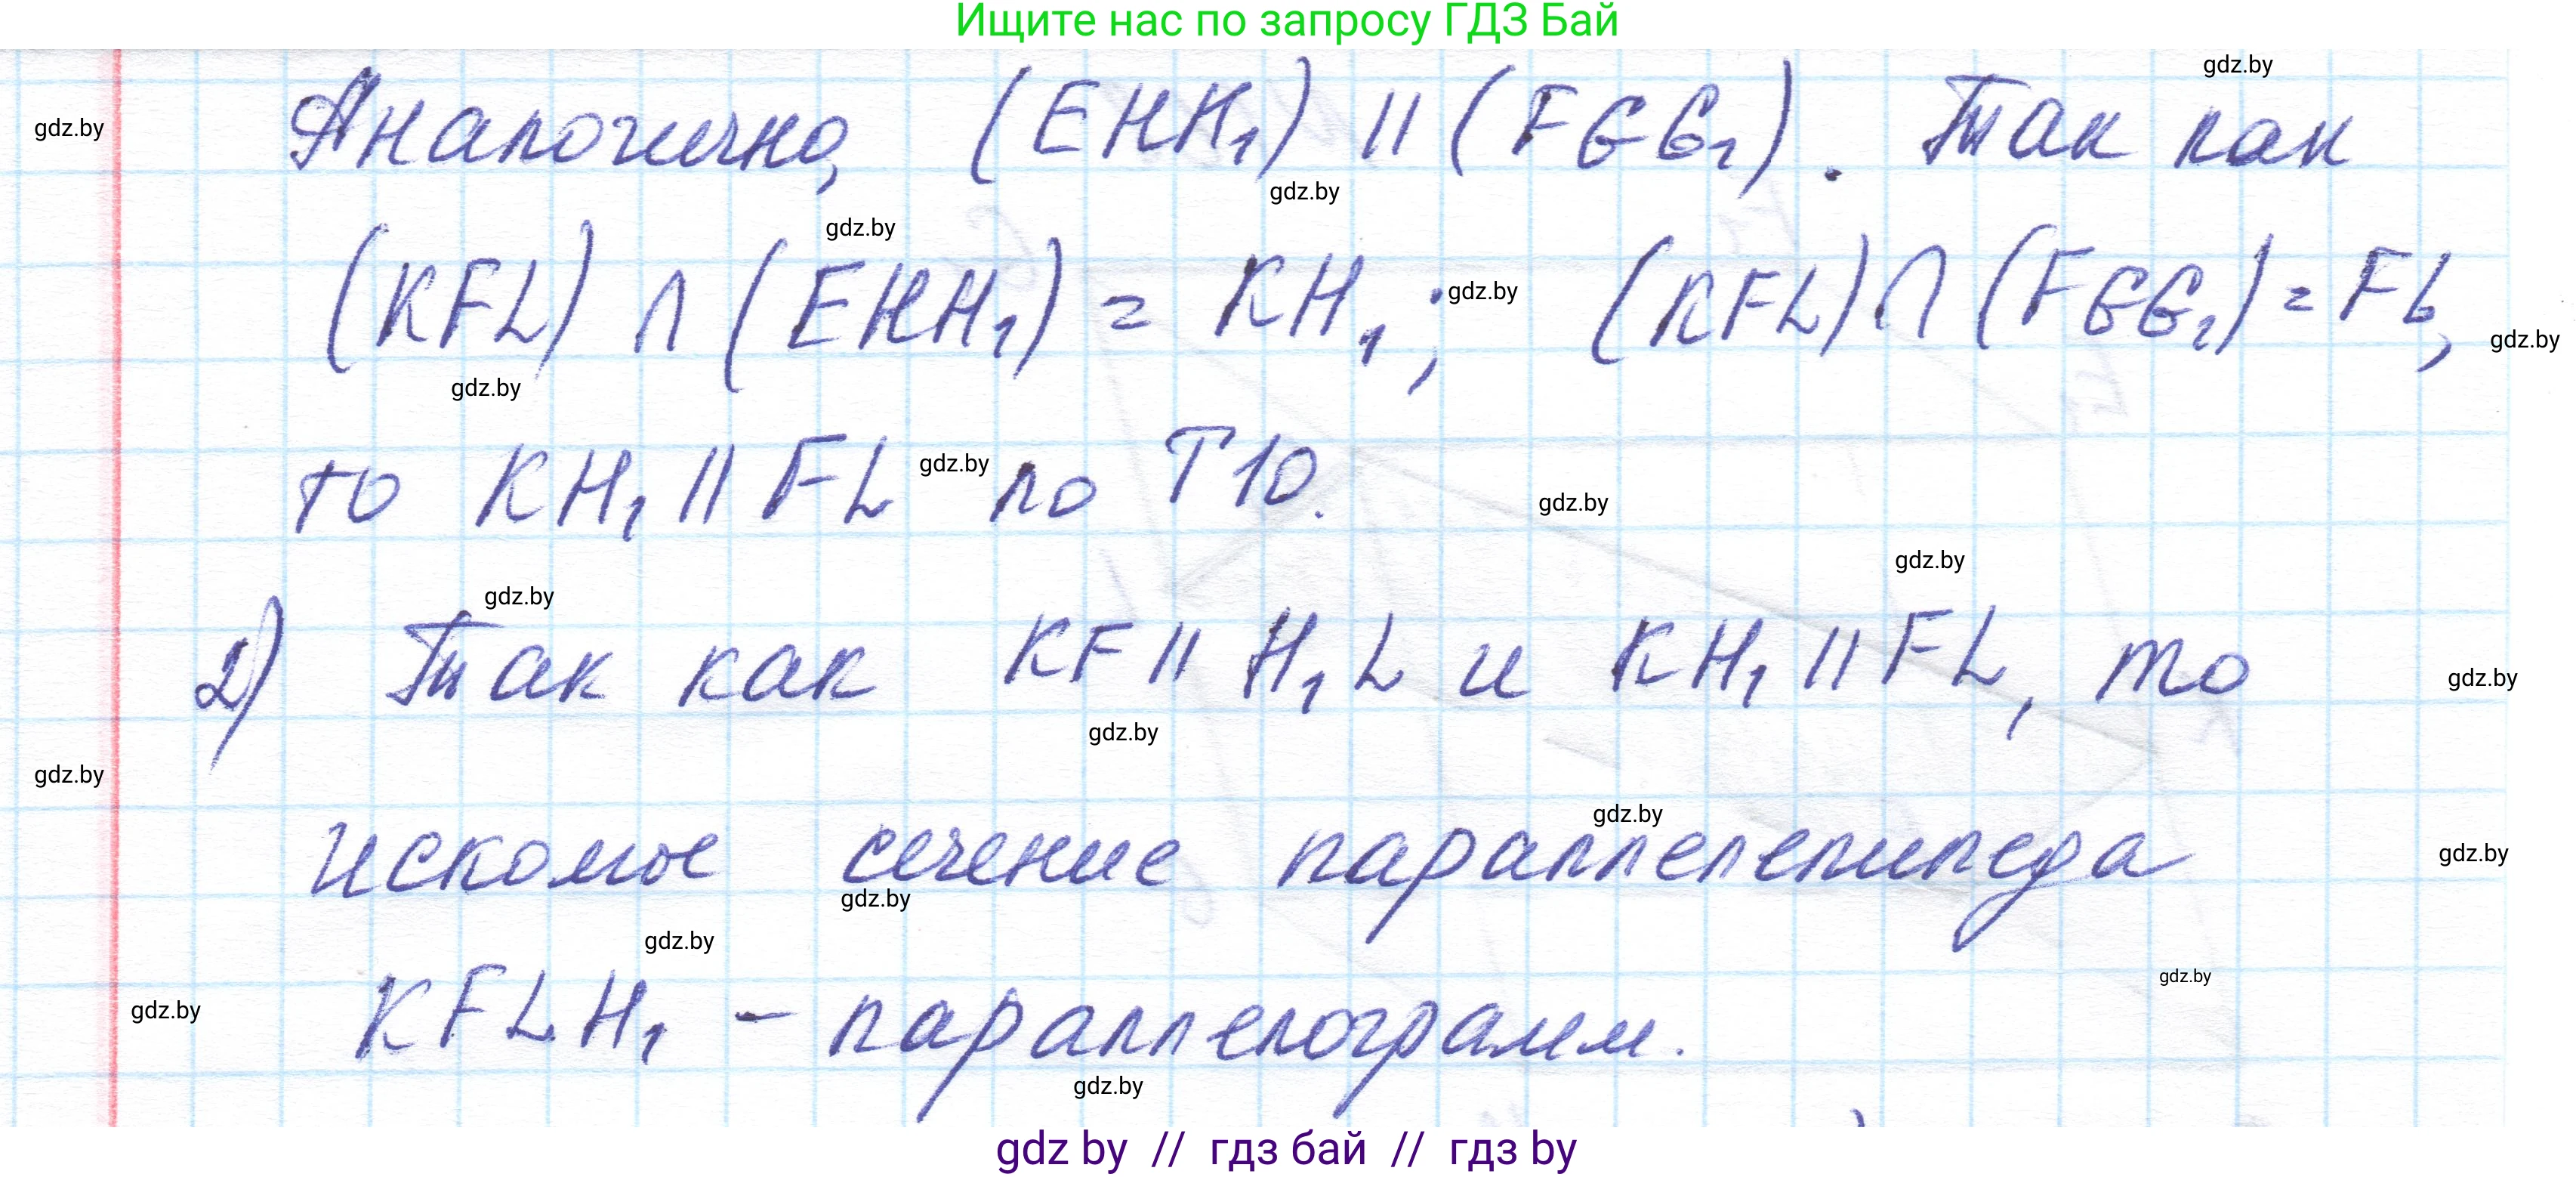 Ищите нас по запросу ГДЗ Бай
gdz.by
gdz.by
Аналогично, (EHH₁) || (FGG₁). Так как
gdz.by
gdz.by
(KFL) ∩ (EHH₁) = KH₁; (KFL) ∩ (FGG₁) = FL,
gdz.by
gdz.by
gdz.by
то KH₁ || FL по Т10.
gdz.by
gdz.by
gdz.by
gdz.by
2) Так как KF || H₁L и KH₁ || FL, то
gdz.by
gdz.by
gdz.by
gdz.by
искомое сечение параллелепипеда
gdz.by
gdz.by
gdz.by
gdz.by
KFLH₁ - параллелограмм.
gdz.by
gdz.by
gdz by // гдз бай // гдз by